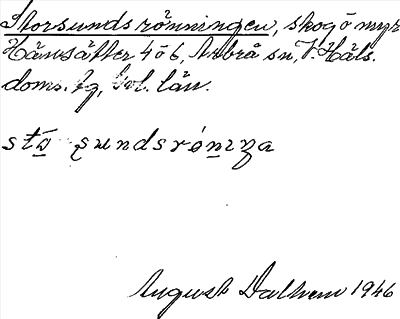 Storsundsrönningen, skog ö myr
Hänsätter 4 ö 6, Arbrå sn, V. Häls.
doms. , län.
sundsrónıŋa
August Dalhem 1946